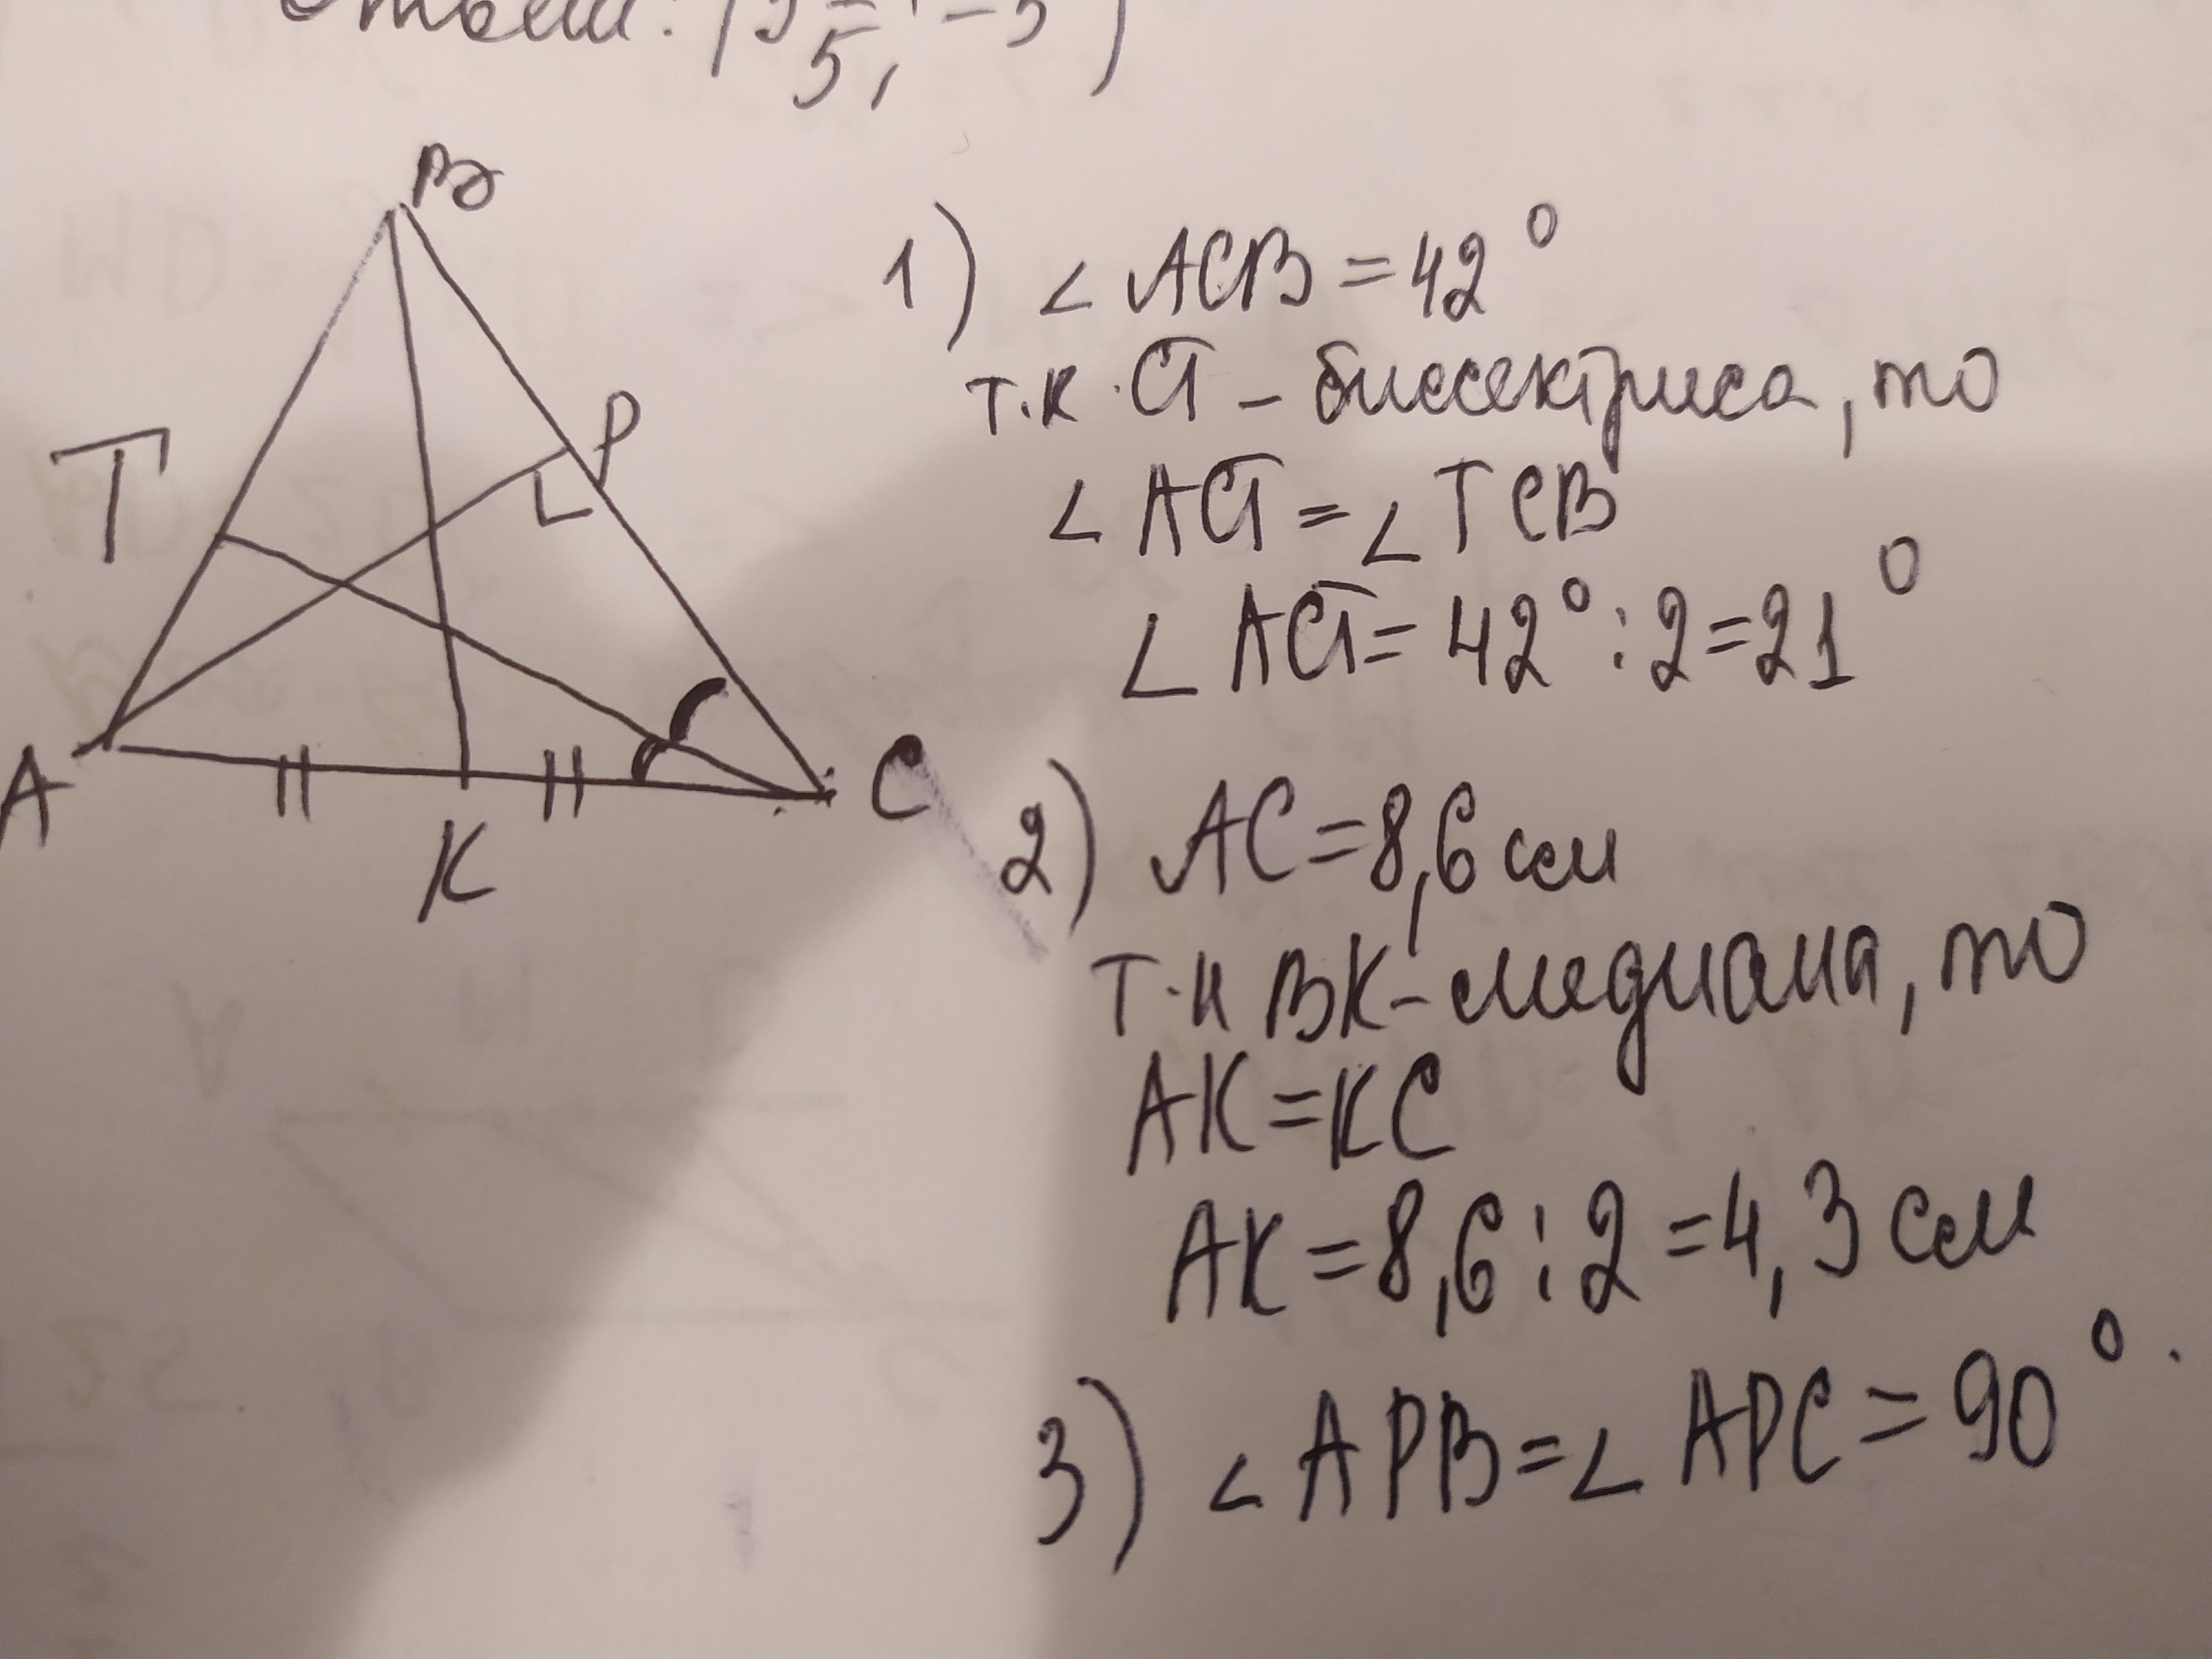 Ответ:
5,
B
P
T
A
K
C
1) ∠ ACB = 42°
т.к. CT - биссектриса, то
∠ ACT = ∠ TCB
∠ ACT = 42° : 2 = 21°
2) AC = 8,6 см
т.к BK - медиана, то
AK = KC
AK = 8,6 : 2 = 4,3 см
3) ∠ APB = ∠ APC = 90°.